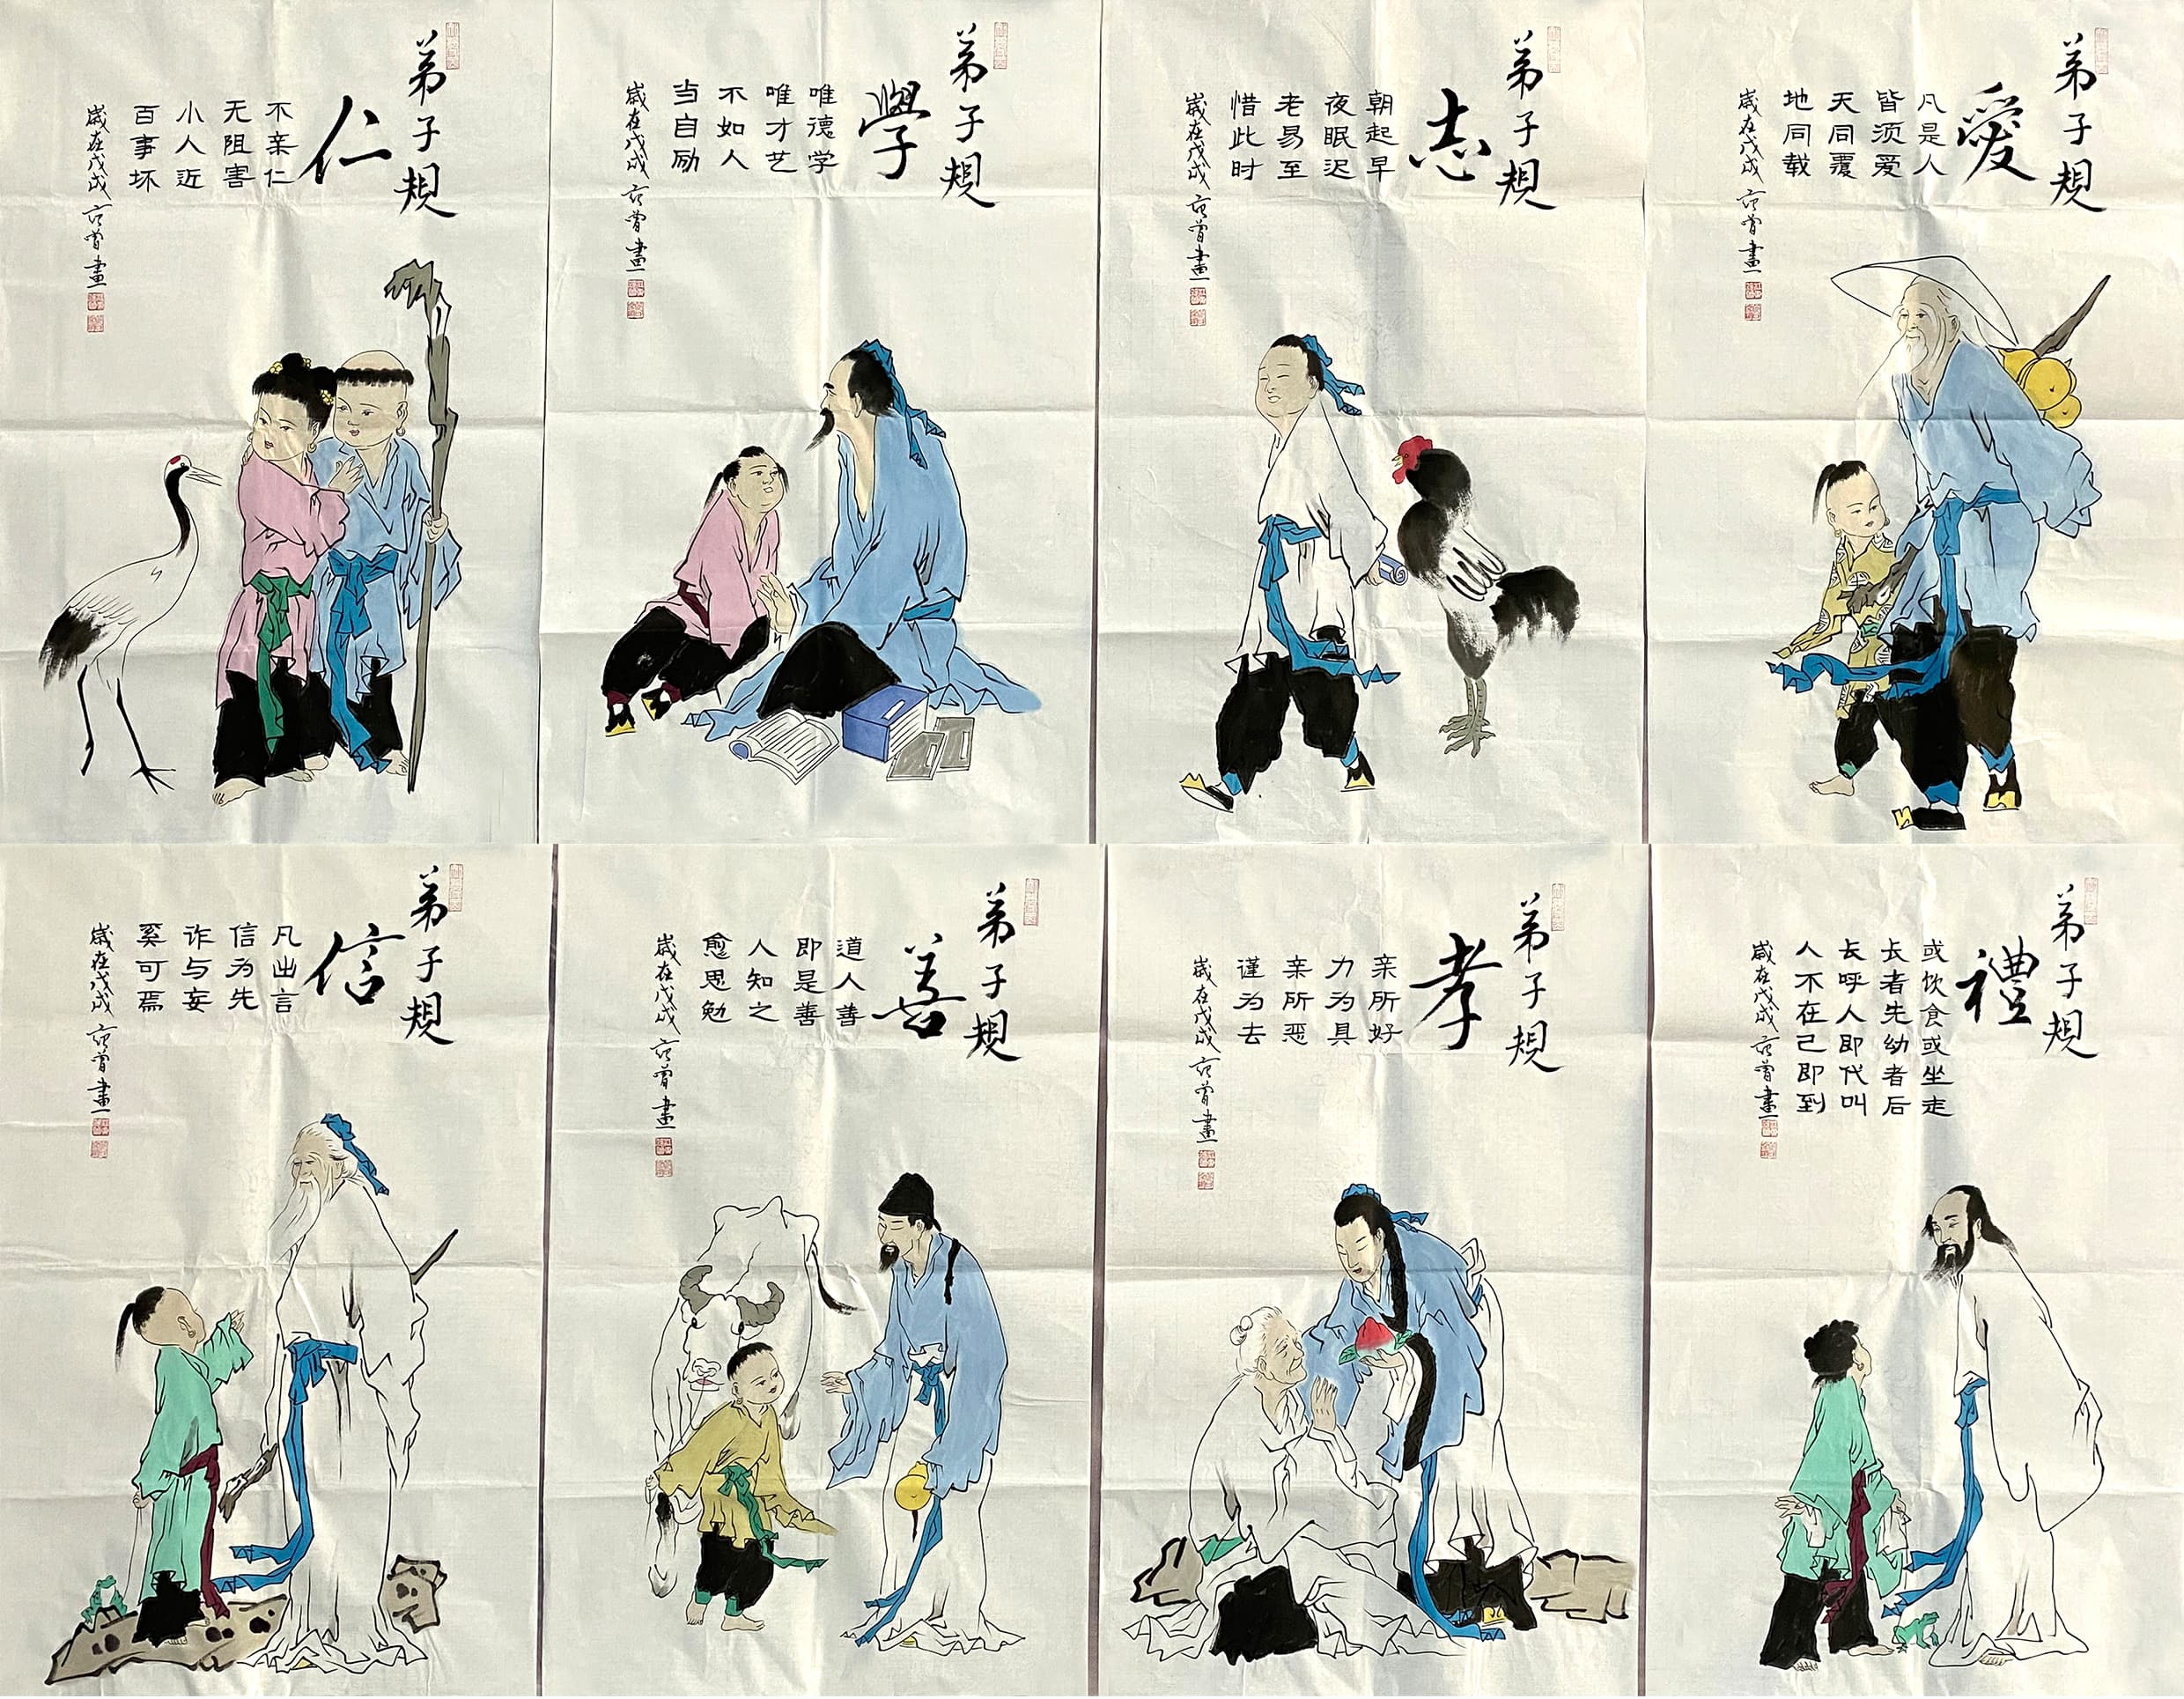 弟子规
仁
不亲仁
无阻害
小人近
百事坏
歲在戊戌
范曾畫
弟子规
學
唯德学
唯才艺
不如人
当自励
歲在戊戌
范曾畫
弟子规
志
朝起早
夜眠迟
老易至
惜此时
歲在戊戌
范曾畫
弟子规
愛
凡是人
皆须爱
天同覆
地同载
歲在戊戌
范曾畫
弟子规
信
凡出言
信为先
诈与妄
奚可焉
歲在戊戌
范曾畫
弟子规
善
道人善
即是善
人知之
愈思勉
歲在戊戌
范曾畫
弟子规
孝
亲所好
力为具
亲所恶
谨为去
歲在戊戌
范曾畫
弟子规
禮
或饮食或坐走
长者先幼者后
长呼人即代叫
人不在己即到
歲在戊戌
范曾畫